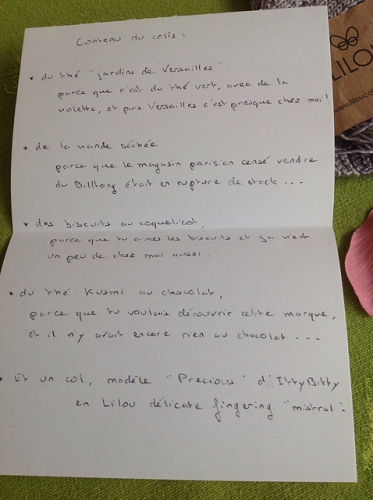 Contenu du colis :
• du thé "jardins de Versailles"
parce que c'est du thé vert, avec de la
violette, et puis Versailles c'est presque chez moi !
• de la viande séchée
parce que le magasin parisien censé vendre
du Billtong était en rupture de stock ...
• des biscuits au coquelicot,
parce que tu aimes les biscuits et ça vient
un peu de chez moi aussi.
• du thé Kusmi au chocolat,
parce que tu voulais découvrir cette marque,
et il n'y avait encore rien au chocolat ...
• Et un col, modèle "Precious" d'IttyBitty
en Lilou délicate fingering "mistral".
LILOU